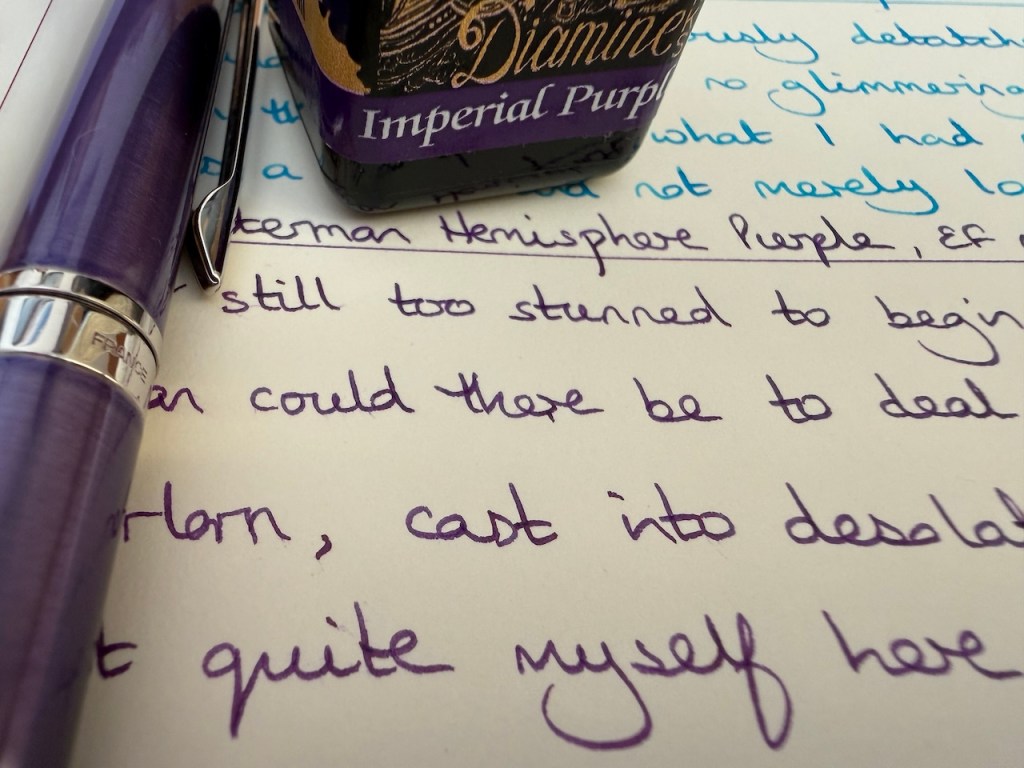 Diamine
Imperial Purpl
ously detatch
no glimmering
what I had
a
not merely lo
terman Hemisphere Purple, EF
still too stunned to begin
an could there be to deal
rlorn, cast into desolat
t quite myself here
FRANCE